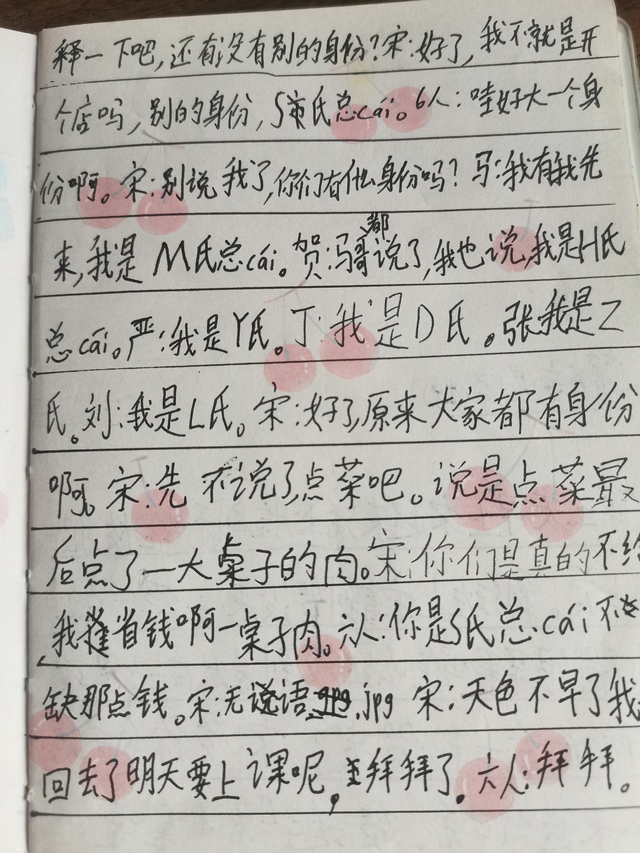 释一下吧,还有没有别的身份?宋:好了,我不就是开
个店吗,别的身份,S氏总cái。6人:哇好大一个身
份啊。宋:别说我了,你们有什么身份吗?马:我有我先
来,我是M氏总cái。贺:马哥都说了,我也说,我是H氏
总cái。严:我是Y氏。丁:我是D氏。张我是Z
氏。刘:我是L氏。宋:好了,原来大家都有身份
啊。宋:先不说了,点菜吧。说是点菜最
后点了一大桌子的肉。宋:你们是真的不给
我省钱啊一桌子肉。六人:你是S氏总cái不
缺那点钱。宋:无语.jpg 宋:天色不早了我
回去了明天要上课呢,拜拜了。六人:拜拜。